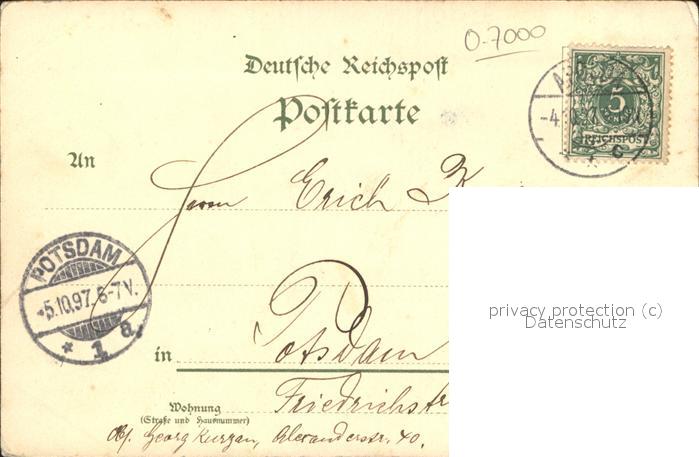 0-7000
Deutsche Reichspost
Postkarte
5
REICHSPOST
-4.10.97
C
An
Herrn Erich K
POTSDAM
-5.10.97. 6-7V.
* 1 a.
privacy protection (c)
Datenschutz
in Potsdam
Wohnung
(Straße und Hausnummer)
Friedrichstr
Abs. Georg Kurzan, Alexanderstr. 40.